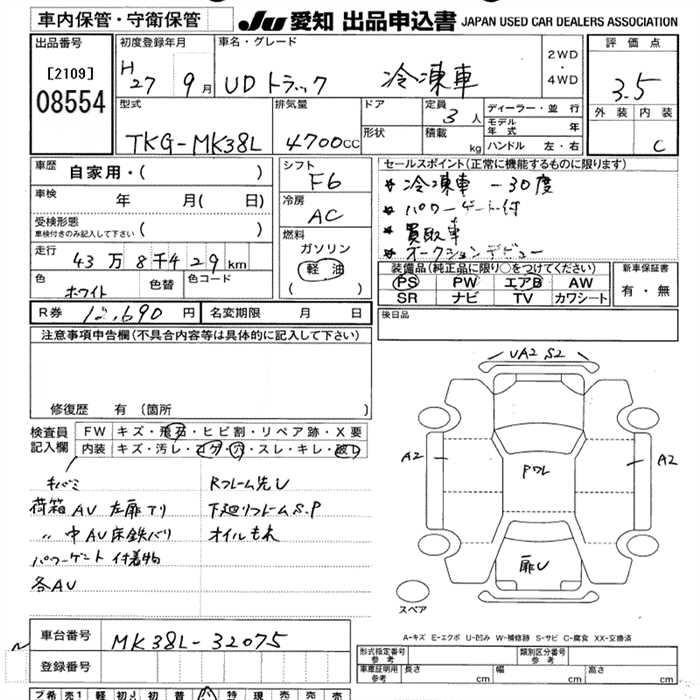 車内保管・守衛保管
JU 愛知 出品申込書 JAPAN USED CAR DEALERS ASSOCIATION
出品番号
[2109]
08554
初度登録年月
H
27 9月
車名・グレード
UDトラック 冷凍車
2WD
・
4WD
評価点
3.5
外装 内装
C
型式
TKG-MK38L
排気量
4700cc
ドア
形状
定員
3人
積載
kg
ディーラー・並行
モデル
年式 年
ハンドル 左・右
車歴
自家用・( )
車検
年 月( 日)
受検形態
車検付きのみ記入して下さい ( )
走行
43万8千429km
色
ホワイト
色替
色コード
シフト
F6
冷房
AC
燃料
ガソリン
軽油
( )
セールスポイント(正常に機能するものに限ります)
* 冷凍車 -30度
* パワーゲート付
* 買取車
* オークションデビュー
装備品(純正品に限り○をつけてください)
PS PW エアB AW
SR ナビ TV カワシート
新車保証書
有・無
R券 12,690円
名変期限 月 日
後日品
注意事項申告欄(不具合内容等は具体的に記入して下さい)
修復歴 有(箇所 )
検査員
記入欄
FW キズ・飛石・ヒビ割・リペア跡・X要
内装 キズ・汚レ・コゲ・穴・スレ・キレ・破レ
キバミ
荷箱AU 左扉テリ
〃 中AU床鉄バリ
パワーゲート 付着物
各AU
Rフレーム先U
下廻リフレームS.P
オイルもれ
UA2 S2
A2
Pワレ
A2
扉U
スペア
A-キズ E-エクボ U-凹み W-補修跡 S-サビ C-腐食 XX-交換済
車台番号
MK38L-32075
登録番号
形式指定番号
参考
類別区分番号
参考
車庫証明用
参考
長さ cm
幅 cm
高さ cm